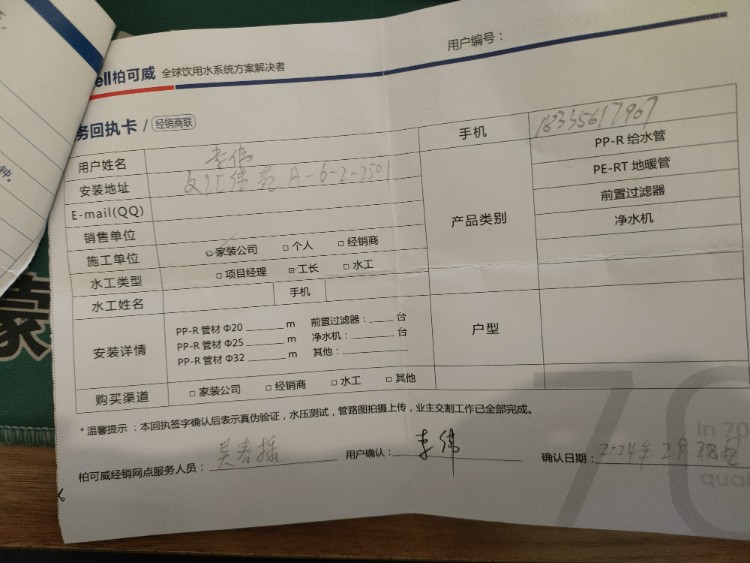 ell柏可威 全球饮用水系统方案解决者
用户编号：
务回执卡 / 经销商联
用户姓名 李伟 手机 18335617907
安装地址 文汇佳苑 A-6-2-2501
E-mail(QQ)
销售单位
施工单位 □家装公司 □个人 □经销商
水工类型 □项目经理 □工长 □水工
水工姓名 手机
产品类别
PP-R 给水管
PE-RT 地暖管
前置过滤器
净水机
安装详情
PP-R 管材 Φ20 ______ m 前置过滤器：____ 台
PP-R 管材 Φ25 ______ m 净水机：____ 台
PP-R 管材 Φ32 ______ m 其他：______
户型
购买渠道 □家装公司 □经销商 □水工 □其他
*温馨提示：本回执签字确认后表示真伪验证，水压测试，管路图拍摄上传，业主交割工作已全部完成。
柏可威经销网点服务人员： 用户确认：李伟 确认日期：
70
in 70
qual
种。